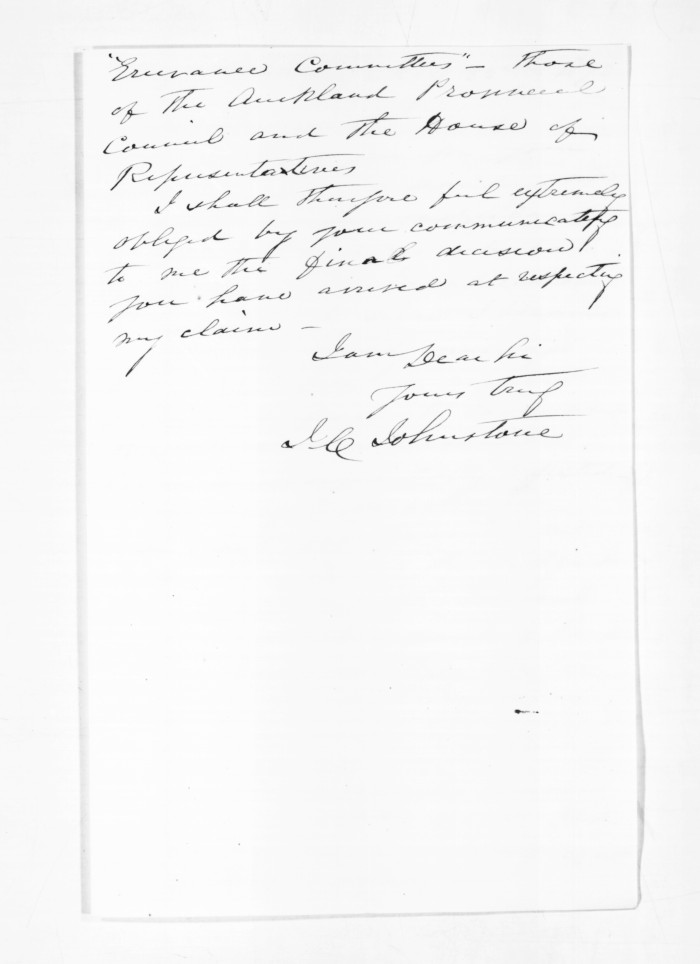 "Grievance Committees" – those
of the Auckland Provincial
Council and the House of
Representatives
I shall therefore feel extremely
obliged by your communicating
to me the final decision
you have arrived at respecting
my claim –
I am Dear Sir
Yours truly
J C Johnstone